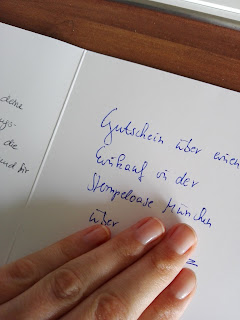 deine
die
und dir
Gutschein über einen
Einkauf in der
Stempeloase München
über